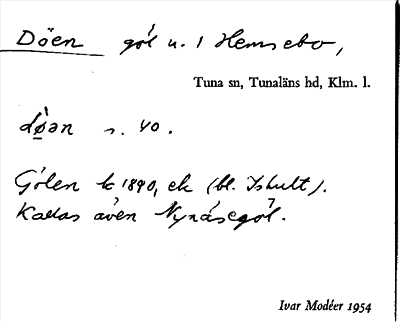 Döen göl u. 1 Hemsebo,
Tuna sn, Tunaläns hd, Klm. l.
dø̀ən s. 40.
Gölen k 1890, ek (bl. Ishult).
Kallas även Nynäsegöl.
Ivar Modéer 1954